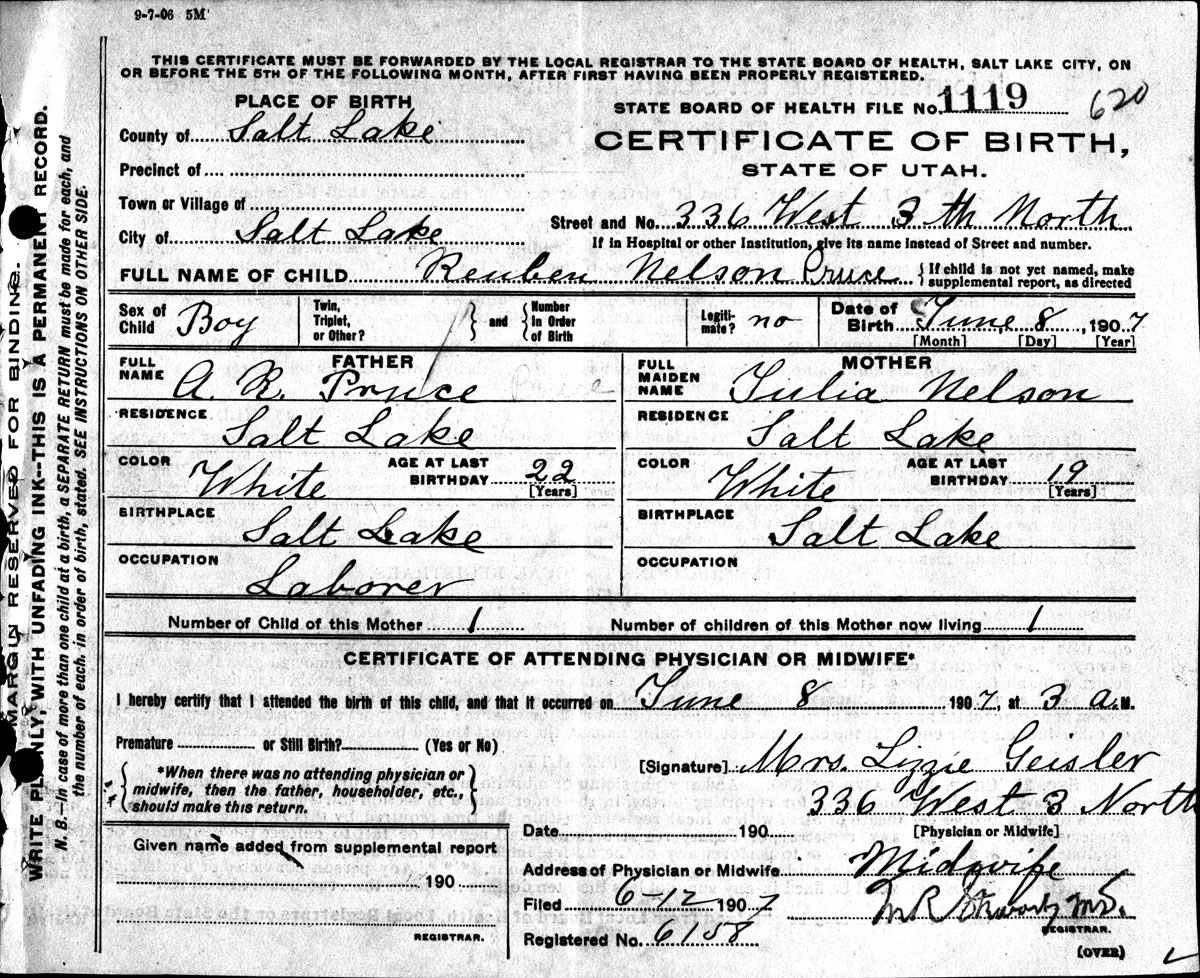 9-7-06 5M
THIS CERTIFICATE MUST BE FORWARDED BY THE LOCAL REGISTRAR TO THE STATE BOARD OF HEALTH, SALT LAKE CITY, ON
OR BEFORE THE 5TH OF THE FOLLOWING MONTH, AFTER FIRST HAVING BEEN PROPERLY REGISTERED.
PLACE OF BIRTH,
STATE BOARD OF HEALTH FILE No. 1119 620
County of Salt Lake
CERTIFICATE OF BIRTH,
Precinct of
STATE OF UTAH.
Town or Village of
Street and No. 336 West 3 th North
City of Salt Lake
If in Hospital or other Institution, give its name instead of Street and number.
FULL NAME OF CHILD Reuben Nelson Pruce {If child is not yet named, make
supplemental report, as directed
Sex of Child Boy Twin, Triplet, or Other? } and { Number in Order of Birth Legiti-mate? no Date of Birth June 8, 1907
[Month] [Day] [Year]
FATHER MOTHER
FULL NAME A. R. Pruce FULL MAIDEN NAME Julia Nelson
RESIDENCE Salt Lake RESIDENCE Salt Lake
COLOR White AGE AT LAST BIRTHDAY 22 [Years] COLOR White AGE AT LAST BIRTHDAY 19 [Years]
BIRTHPLACE Salt Lake BIRTHPLACE Salt Lake
OCCUPATION Laborer OCCUPATION
Number of Child of this Mother 1 Number of children of this Mother now living 1
CERTIFICATE OF ATTENDING PHYSICIAN OR MIDWIFE*
I hereby certify that I attended the birth of this child, and that it occurred on June 8 1907, at 3 a.M.
Premature or Still Birth? (Yes or No)
[Signature] Mrs. Lizzie Geisler
{*When there was no attending physician or
midwife, then the father, householder, etc.,
should make this return.}
336 West 3 North
Date 190 [Physician or Midwife]
Given name added from supplemental report
190
REGISTRAR.
Address of Physician or Midwife Midwife
Filed 6-12 1907 M.D.
REGISTRAR.
Registered No. 6158
(OVER)
MARGIN RESERVED FOR BINDING.
WRITE PLAINLY, WITH UNFADING INK--THIS IS A PERMANENT RECORD.
N. B.—In case of more than one child at a birth, a SEPARATE RETURN must be made for each, and
the number of each, in order of birth, stated. SEE INSTRUCTIONS ON OTHER SIDE.